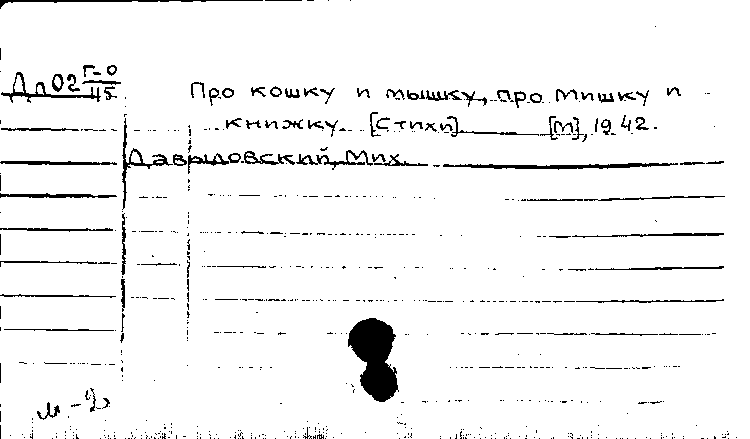 Дл 02 Г-0/45
Про кошку и мышку, про Мишку и
книжку. [Стихи] [М], 1942.
Давыдовский, Мих.